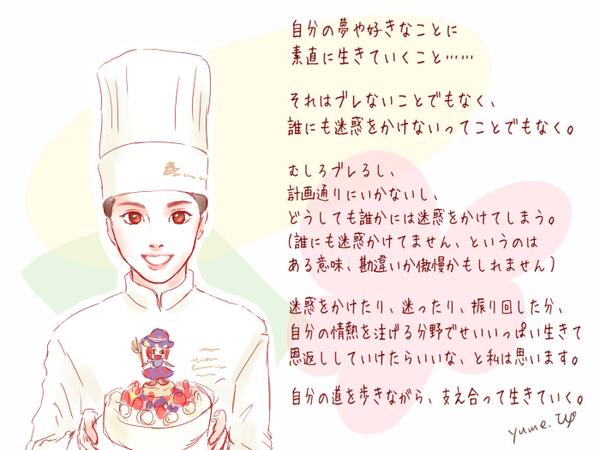 自分の夢や好きなことに
素直に生きていくこと……
それはブレないことでもなく、
誰にも迷惑をかけないってことでもなく。
むしろブレるし、
計画通りにいかないし、
どうしても誰かには迷惑をかけてしまう。
(誰にも迷惑かけてません、というのは
ある意味、勘違いか傲慢かもしれません)
迷惑をかけたり、迷ったり、振り回した分、
自分の情熱を注げる分野でせいいっぱい生きて
恩返ししていけたらいいな、と私は思います。
自分の道を歩きながら、支え合って生きていく。
yume.